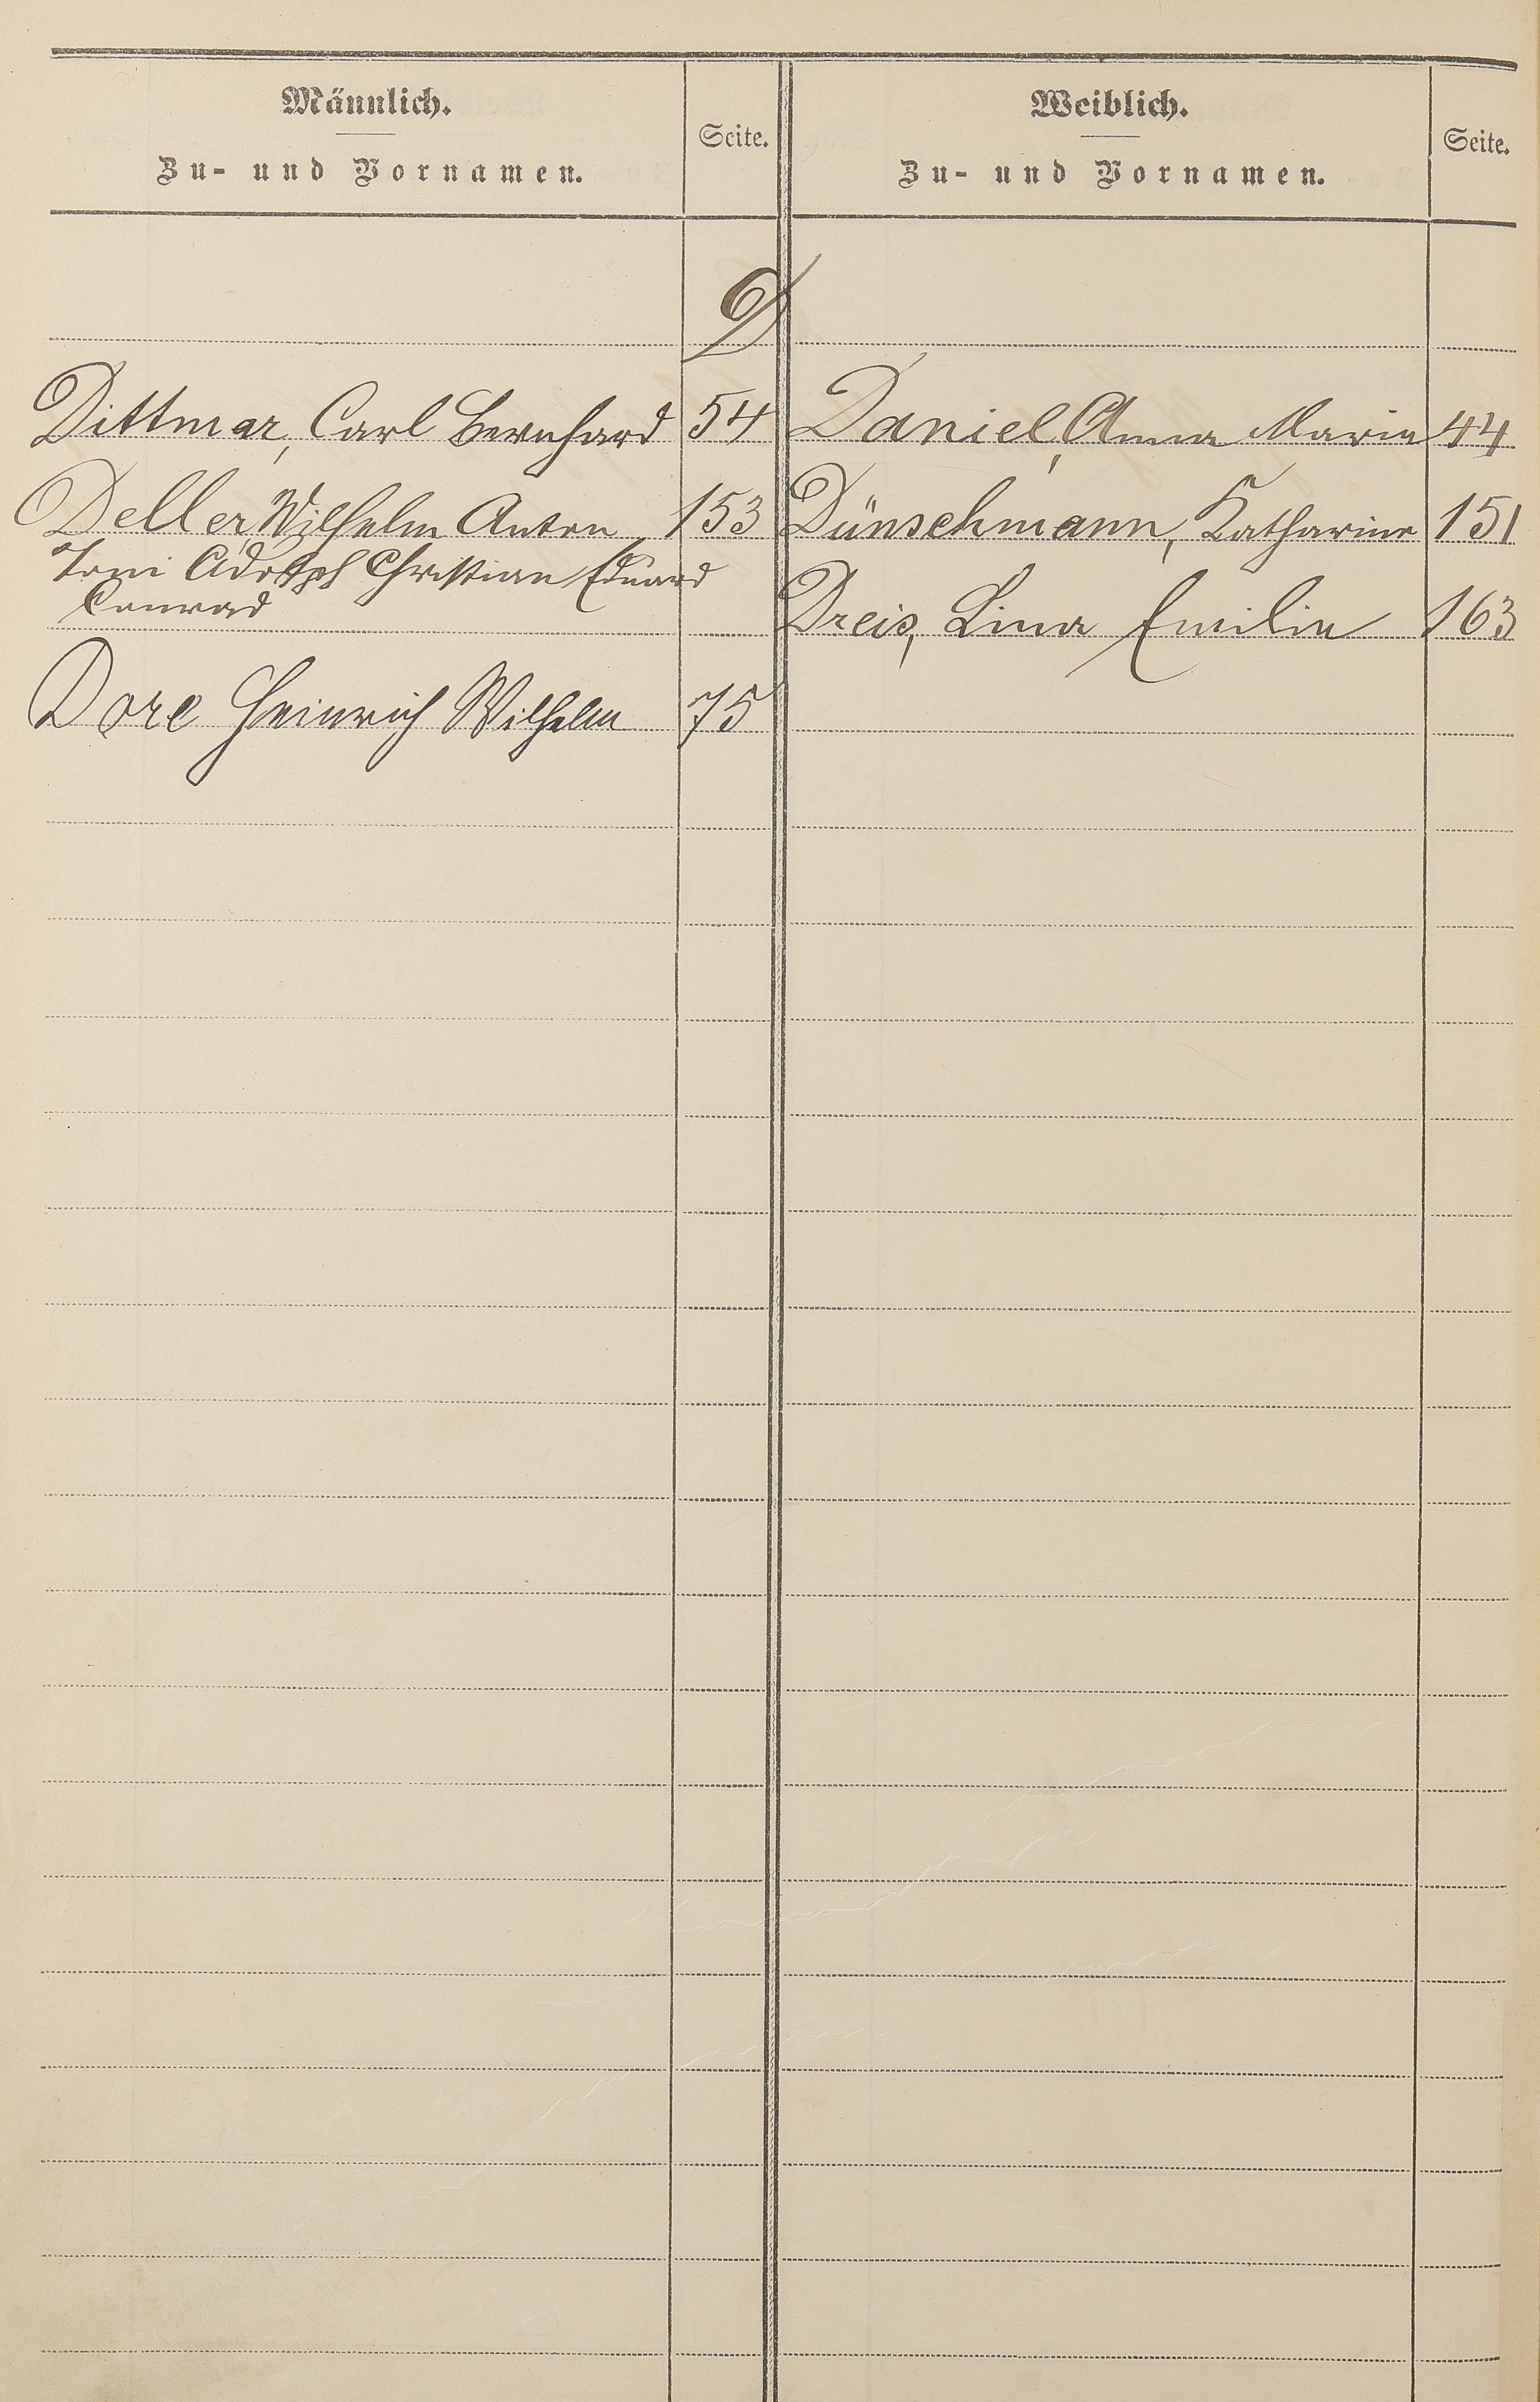 Männlich.
Zu- und Vornamen.
Seite.
Weiblich.
Zu- und Vornamen.
Seite.
D
Dittmar, Carl Bernhard 54
Daniel, Anna Maria 44
Deller, Wilhelm Anton 153
Toni Adolph Christian Eduard
Conrad
Dünschmann, Katharine 151
Dreis, Lina Emilie 163
Heinrich Wilhelm 75